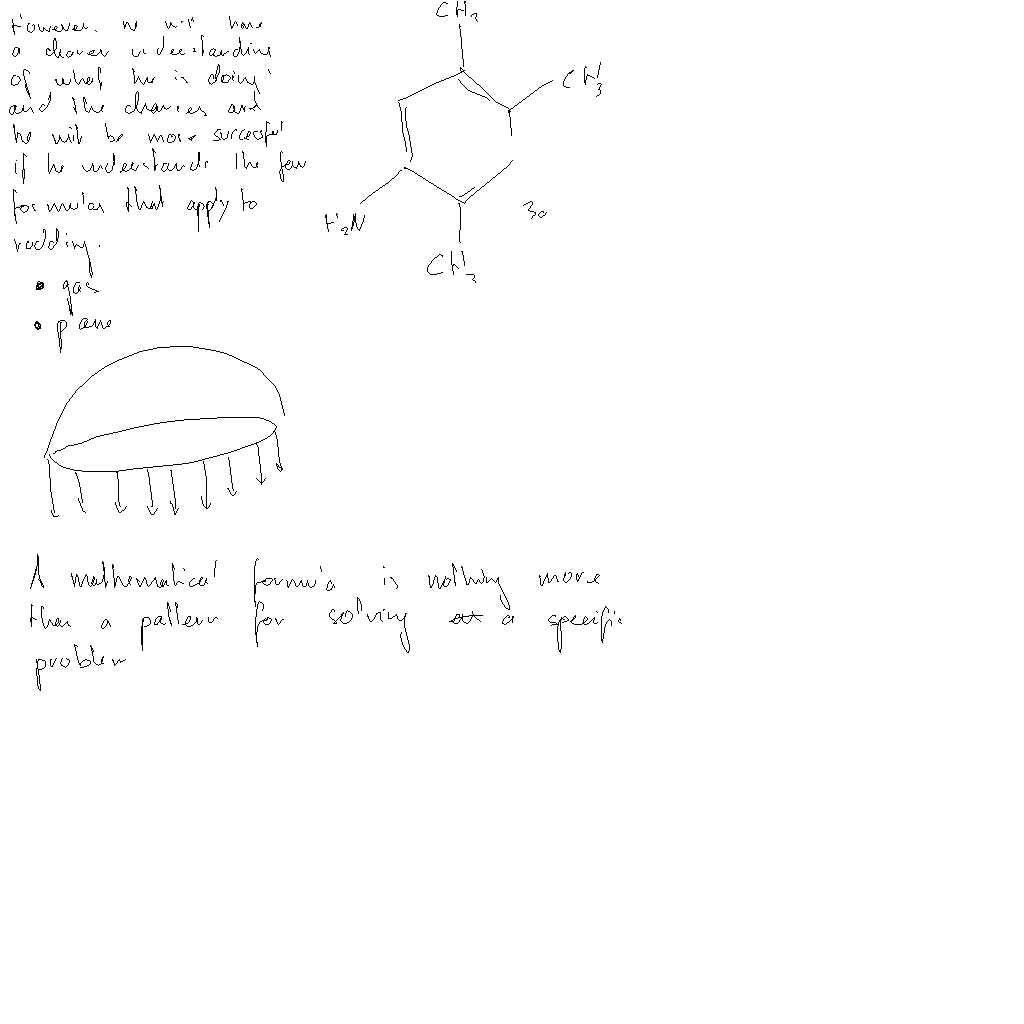 However, he will have
a clearer understanding
of what he is doing
and the chances are
he will be more successful
if he understands the few
formulas that apply to
rodding.
• gas
• pane
CH3
CH3
H2N
30
CH3
A mathematical formula is nothing more
than a pattern for solving a specific
problem